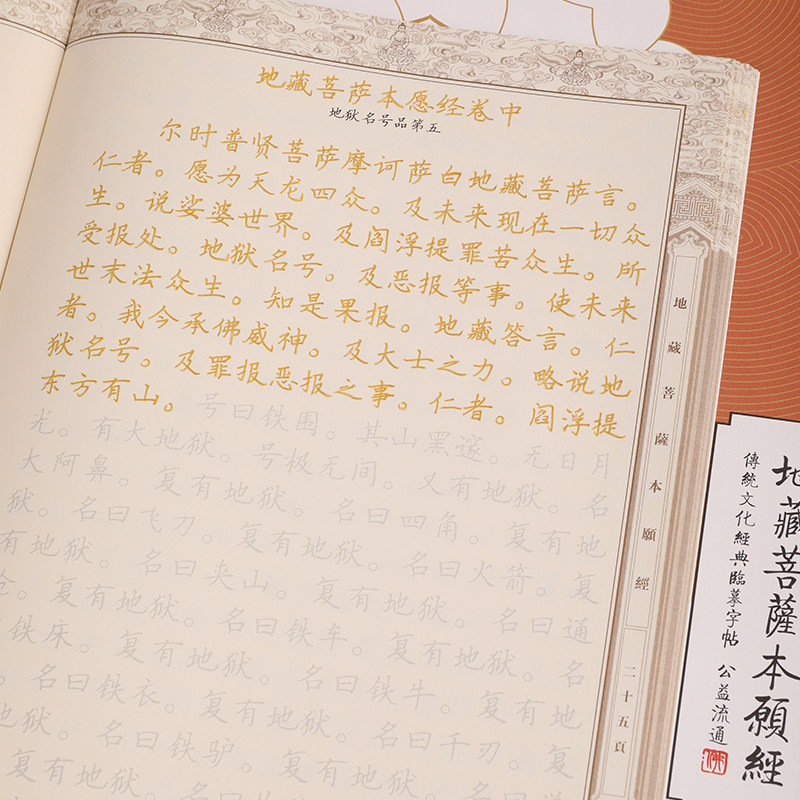 地藏菩萨本愿经卷中
地狱名号品第五
尔时普贤菩萨摩诃萨白地藏菩萨言。
仁者。愿为天龙四众。及未来现在一切众
生。说娑婆世界。及阎浮提罪苦众生。所
受报处。地狱名号。及恶报等事。使未来
世末法众生。知是果报。地藏答言。仁
者。我今承佛威神。及大士之力。略说地
狱名号。及罪报恶报之事。仁者。阎浮提
东方有山。号曰铁围。其山黑邃。无日月
光。有大地狱。号极无间。又有地狱。名
大阿鼻。复有地狱。名曰四角。复有地
狱。名曰飞刀。复有地狱。名曰火箭。复
有地狱。名曰夹山。复有地狱。名曰通
枪。复有地狱。名曰铁车。复有地狱。名
曰铁床。复有地狱。名曰铁牛。复有地
狱。名曰铁衣。复有地狱。名曰千刃。复
有地狱。名曰铁驴。复有地狱。名曰
地藏菩薩本願經
二十五頁
地藏菩薩本願經
傳統文化經典臨摹字帖
公益流通
佛